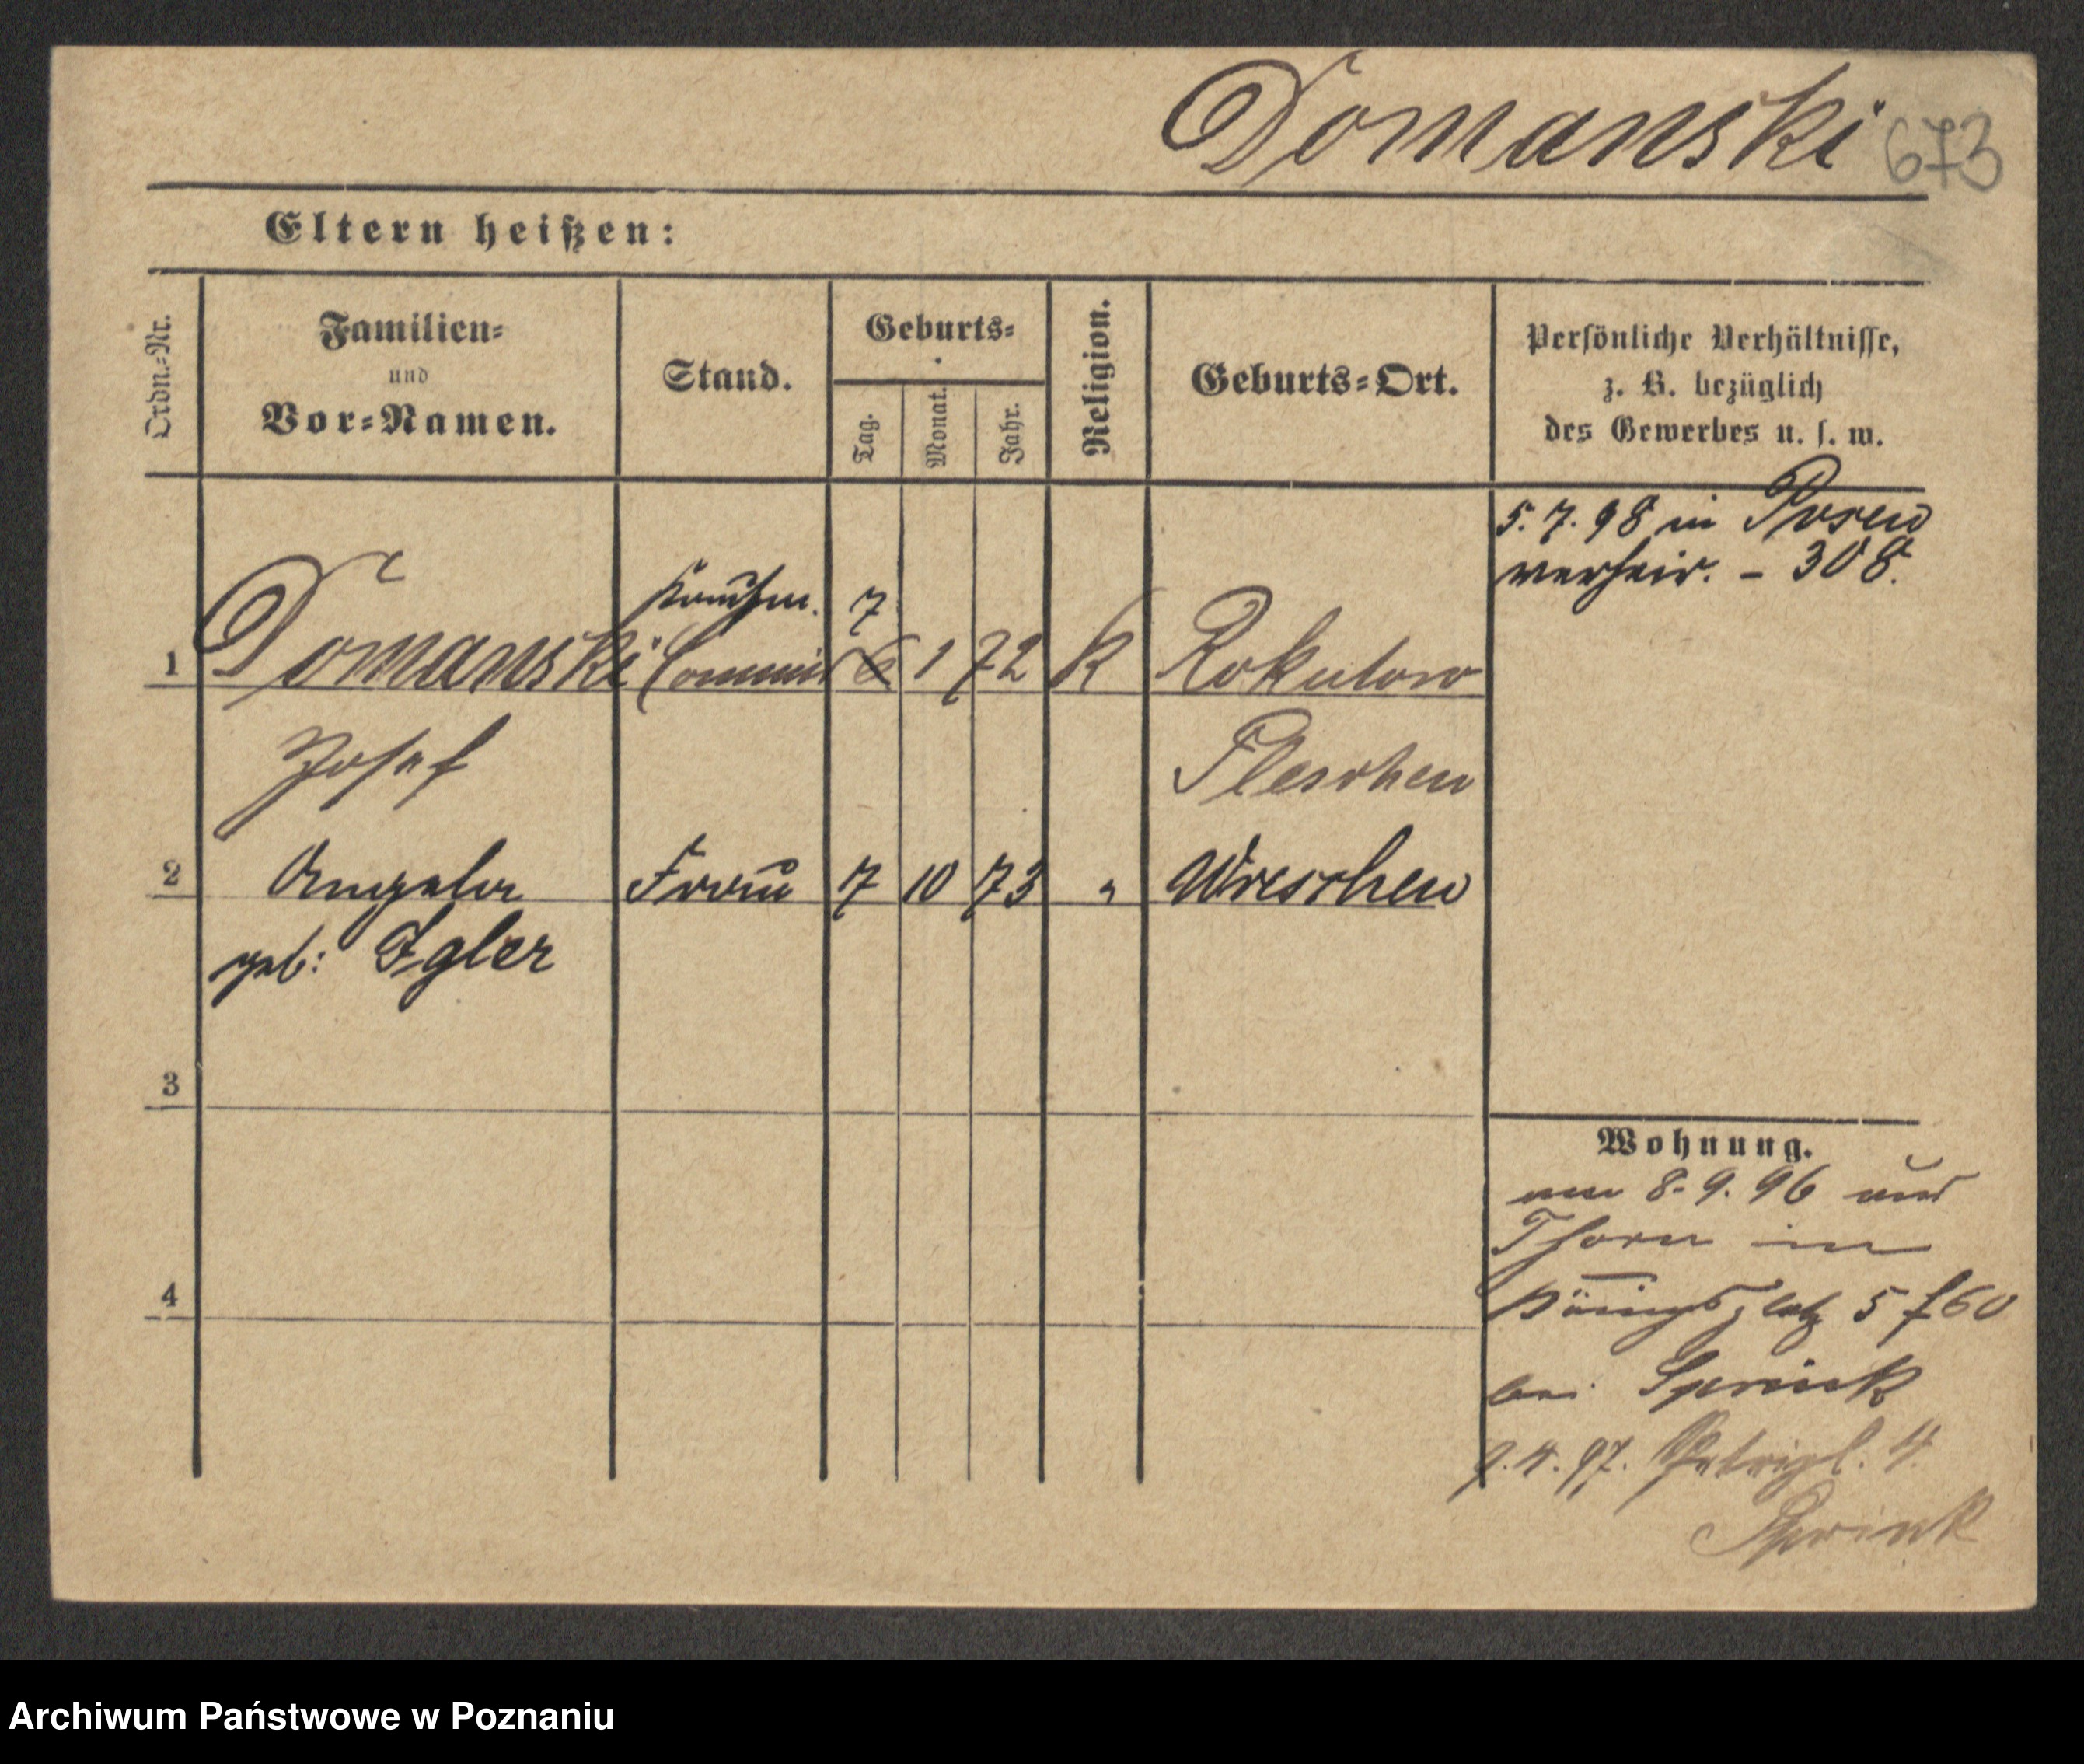 Domanski 673
Eltern heißen:
Ordn.-Nr.
Familien-
und
Vor-Namen.
Stand.
Geburts-
Tag.
Monat.
Jahr.
Religion.
Geburts-Ort.
Persönliche Verhältnisse,
z. B. bezüglich
des Gewerbes u. s. w.
5. 7. 98 in Posen
verheir. – 308.
Kaufm. 7
1 Domanski Commis 6 1 72 K Rokutow
Josef Pleschen
2 Angela Frau 7 10 73 " Wreschen
geb: Igler
3
Wohnung.
am 8. 9. 96 aus
Thorn in
4
Königsplatz 5 f60
bei
9. 4. 97. Petripl. 4.
Archiwum Państwowe w Poznaniu